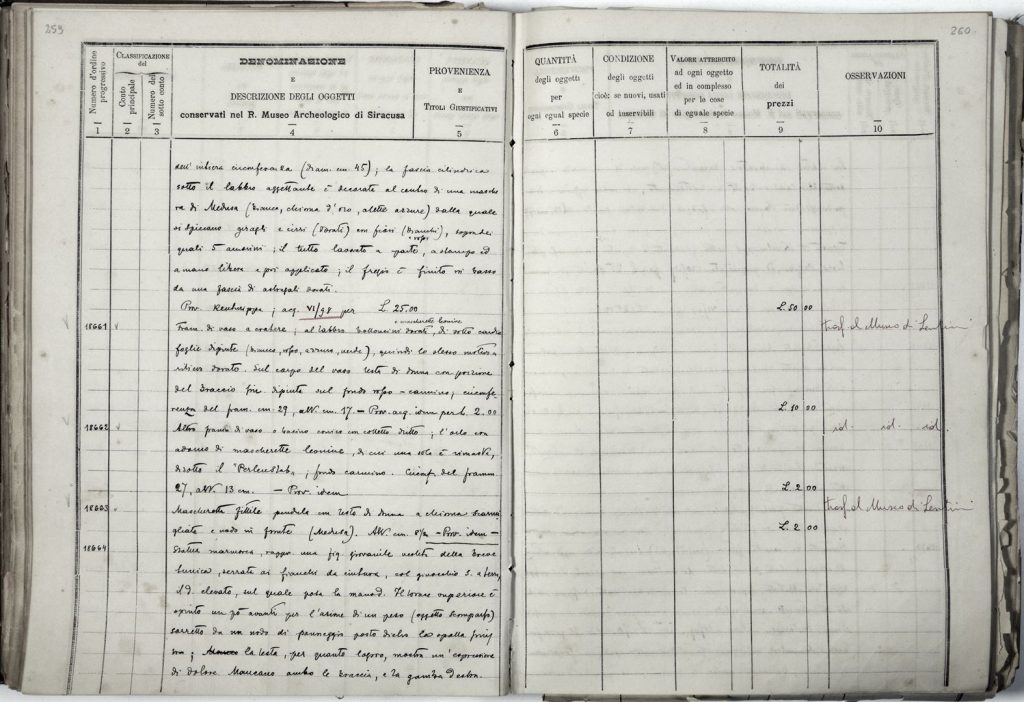 259
260
Numero d'ordine progressivo
CLASSIFICAZIONE
del
Conto principale
Numero del sotto conto
DENOMINAZIONE
E
DESCRIZIONE DEGLI OGGETTI
conservati nel R. Museo Archeologico di Siracusa
PROVENIENZA
E
TITOLI GIUSTIFICATIVI
QUANTITÀ
degli oggetti
per
ogni egual specie
CONDIZIONE
degli oggetti
cioè: se nuovi, usati
od inservibili
VALORE ATTRIBUITO
ad ogni oggetto
ed in complesso
per le cose
di eguale specie
TOTALITÀ
dei
prezzi
OSSERVAZIONI
1 2 3 4 5 6 7 8 9 10
dell'intiera circonferenza (diam. cm. 45); la fascia cilindrica
sotto il labbro aggettante è decorata al centro di una masche
ra di Medusa (bianca, chioma d'oro, alette azzure) dalla quale
si spiccano giragli e cirri (dorati) con fiori (bianchi,
rossi
quali 5 amorini; il tutto lavorato a parte, a stampo ed
a mano libera e poi applicato; il fregio è finito in basso
da una fascia di astragali dorati.
Prov. acq. VI/98 per L. 25.00
L. 50 00
a mascherette leonine
18661 Fram. di vaso a cratere; al labbro bottoncini dorati, di sotto
trasf. al Museo di Lentini
foglie dipinte (bianco, rosso, azzurro, verde), quindi lo stesso motivo a
dorato. Sul corpo del vaso testa di donna con porzione
del braccio sin. dipinta sul fondo rosso-carmino; circonfe
renza del fram. cm. 29, alt. cm. 17 - Prov. acq. idem per L. 2.00
L. 10 00
18662 Altro framm. di vaso o bacino conico con colletto dritto; l'orlo con
id. id. id.
adorno di mascherette leonine, di cui una sola è rimasta,
di sotto il "Perlenstab"; fondo carmino. Circonf. del framm.
27, alt. 13 cm. - Prov. idem
L. 2 00
18663 Mascheretta fittile pendula con testa di donna a chioma scarmi
trasf. al Museo di Lentini
gliata e nodo in fronte (Medusa). Alt. cm. 8½ - Prov. idem -
L. 2 00
18664 Statua marmorea, rappr. una fig. giovanile vestita della breve
tunica, serrata ai fianchi da cintura, col ginocchio s. a terra,
il d. elevato, sul quale posa la mano d. Il torso superiore è
spinto un pò avanti per l'azione di un peso (oggetto scomparso)
sorretto da un nodo di panneggio posto dietro la spalla
la testa, per quanto logora, mostra un'espressione
di dolore Mancano ambo le braccia, e la gamba destra.